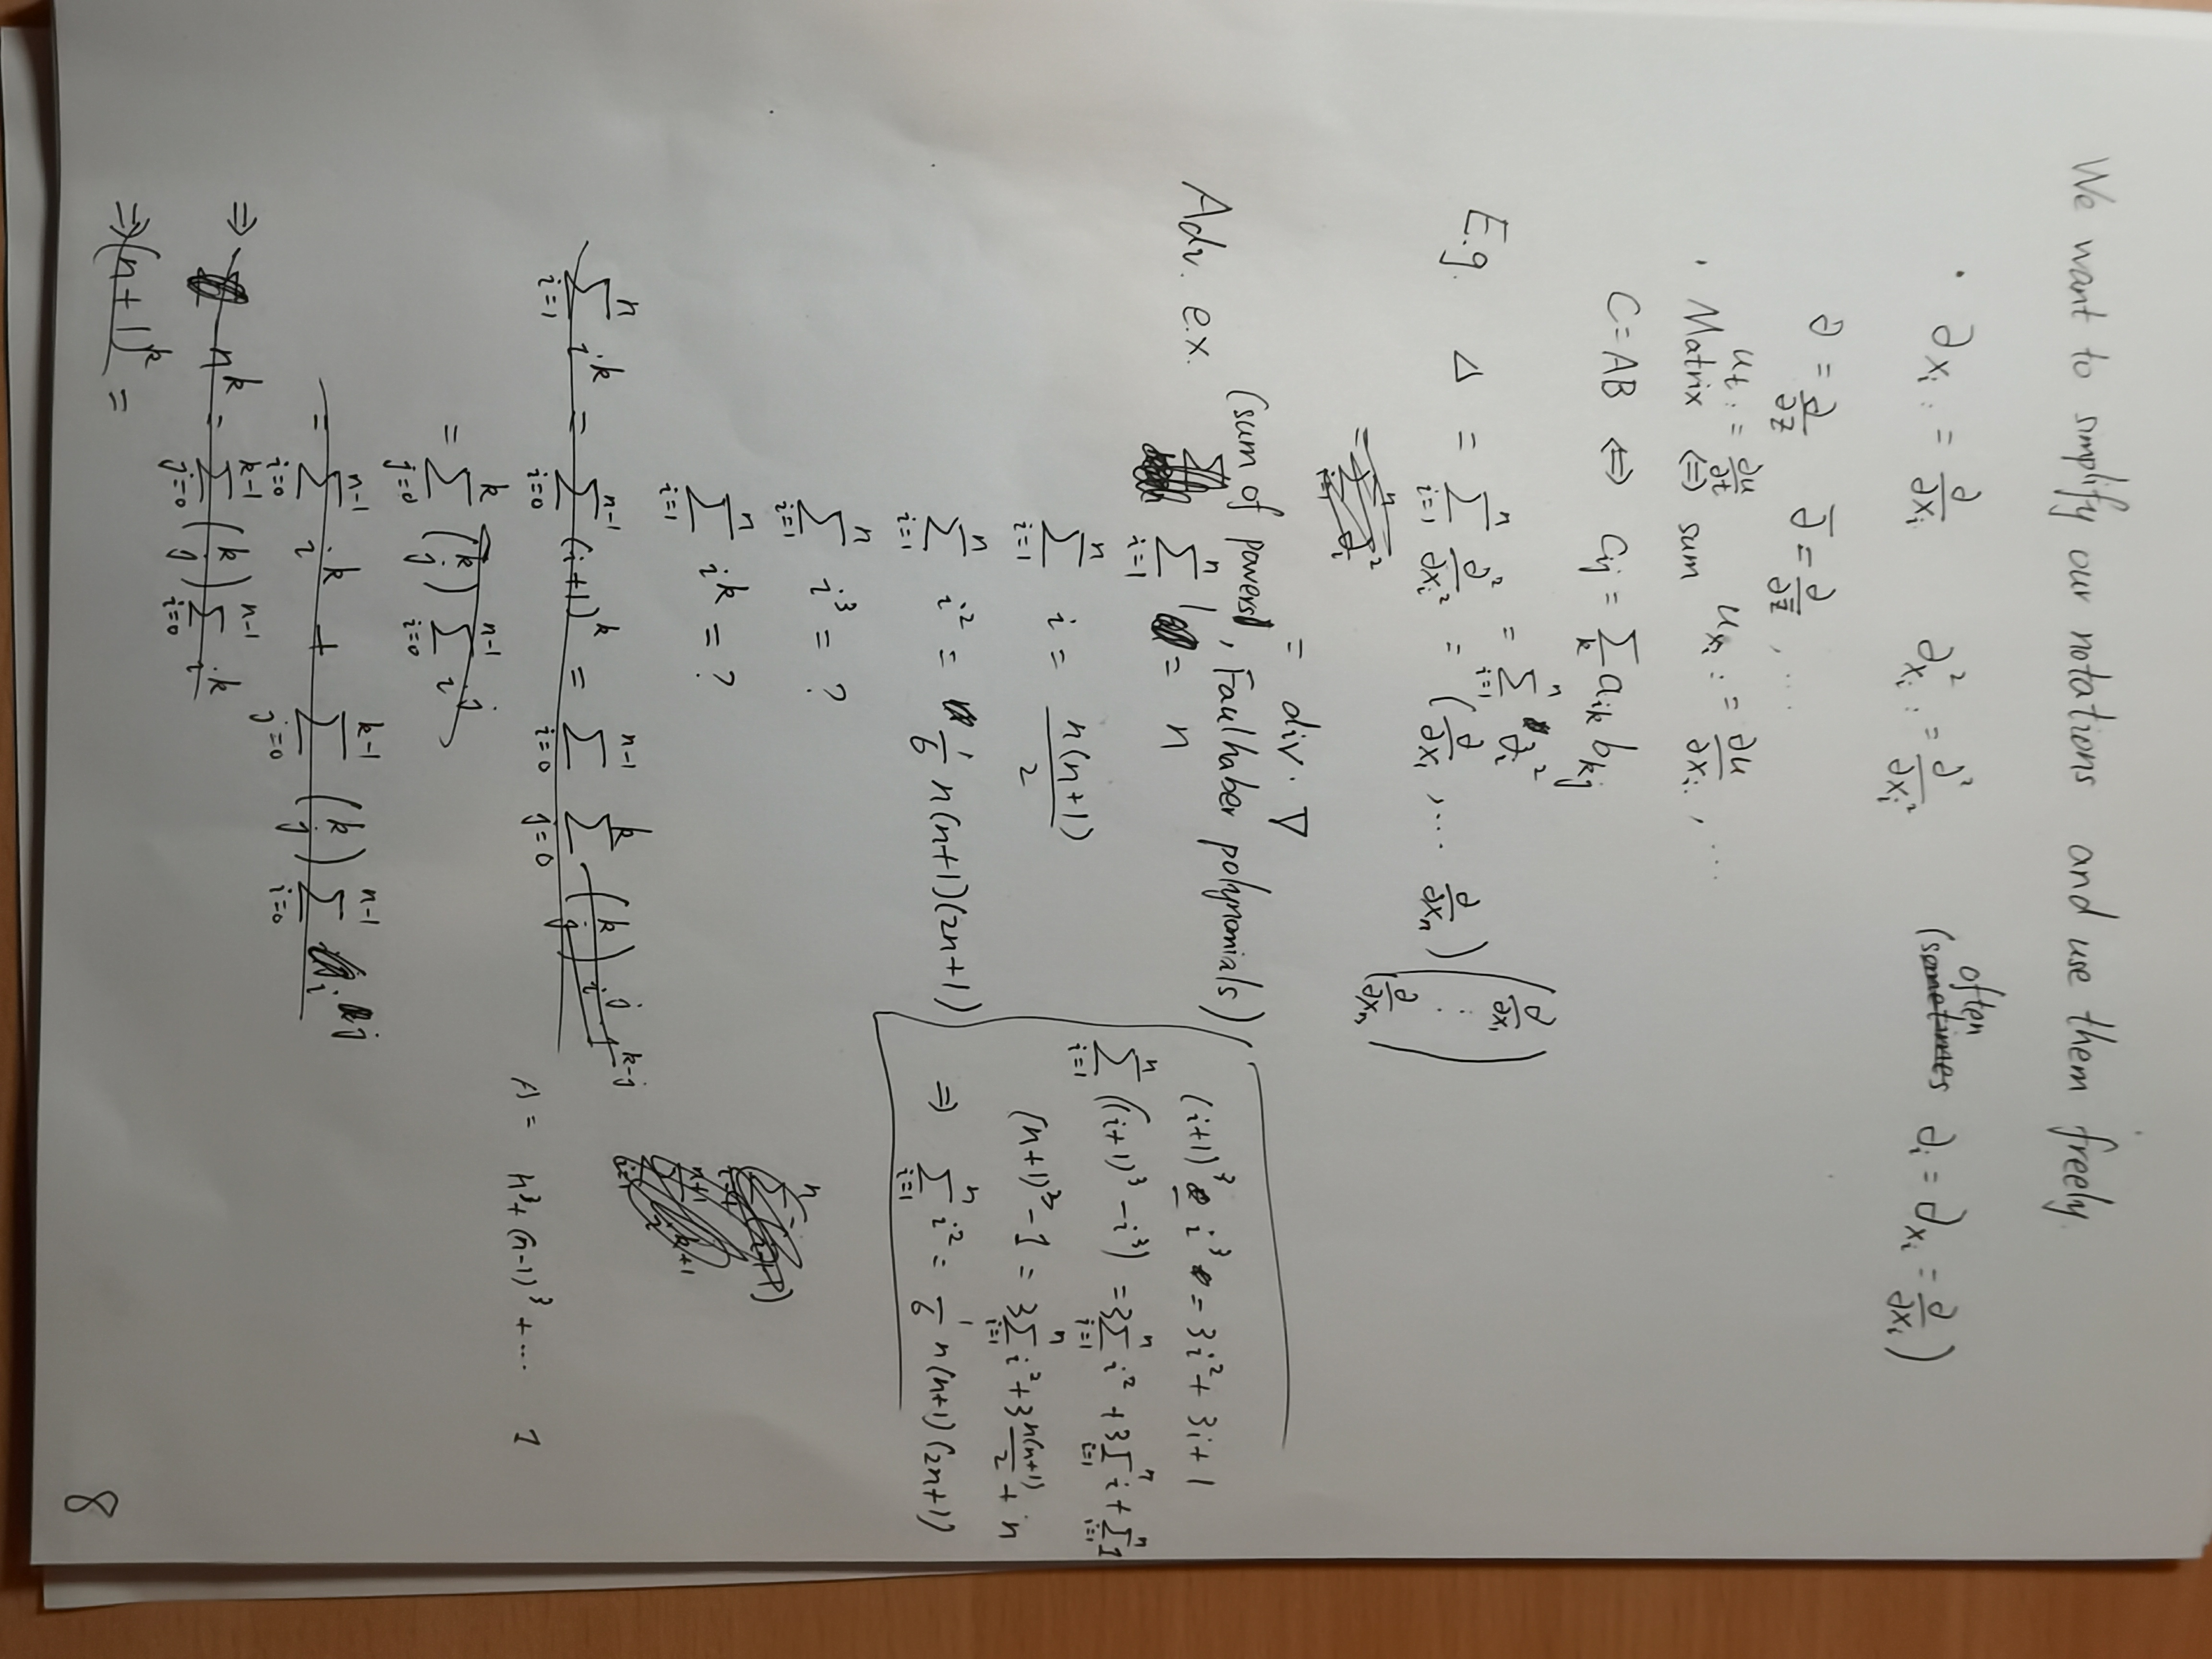 We want to simplify our notations and use them freely.
· ∂x_i := ∂/∂x_i   ∂²_{x_i} := ∂²/∂x_i²   (~~sometimes~~ often ∂_i = ∂_{x_i} = ∂/∂x_i)
∂ = ∂/∂z   ∂̄ = ∂/∂z̄ , ...
u_t := ∂u/∂t   u_{x_i} := ∂u/∂x_i , ...
· Matrix ⇔ sum
C = AB ⇔ c_ij = Σ_k a_ik b_kj
E.g. Δ = Σ_{i=1}^n ∂²/∂x_i² = (∂/∂x_1 , ... ∂/∂x_n) (∂/∂x_1 ⋮ ∂/∂x_n)
= Σ_{i=1}^n ∂_i²
~~= Σ_{i=1}^n ∂_i²~~
= div · ∇
(sum of powers, Faulhaber polynomials)
Adv. ex. Σ_{i=1}^n 1 = n
Σ_{i=1}^n i = n(n+1)/2
Σ_{i=1}^n i² = 1/6 n(n+1)(2n+1)
Σ_{i=1}^n i³ = ?
Σ_{i=1}^n i^k = ?
(i+1)³ - i³ = 3i² + 3i + 1
Σ_{i=1}^n ((i+1)³ - i³) = 3Σ_{i=1}^n i² + 3Σ_{i=1}^n i + Σ_{i=1}^n 1
(n+1)³ - 1 = 3Σ_{i=1}^n i² + 3 n(n+1)/2 + n
⇒ Σ_{i=1}^n i² = 1/6 n(n+1)(2n+1)
~~Σ_{i=1}^n i^k = Σ_{i=0}^{n-1} (i+1)^k = Σ_{i=0}^{n-1} Σ_{j=0}^k (k j) i^j 1^{k-j}~~
= n³ + (n-1)³ + ... 1
~~= Σ_{j=0}^k (k j) Σ_{i=0}^{n-1} i^j~~
~~= Σ_{i=0}^{n-1} i^k + Σ_{j=0}^{k-1} (k j) Σ_{i=0}^{n-1} i^j~~
~~⇒ n^k = Σ_{j=0}^{k-1} (k j) Σ_{i=0}^{n-1} i^k~~
~~⇒ (n+1)^k =~~
8